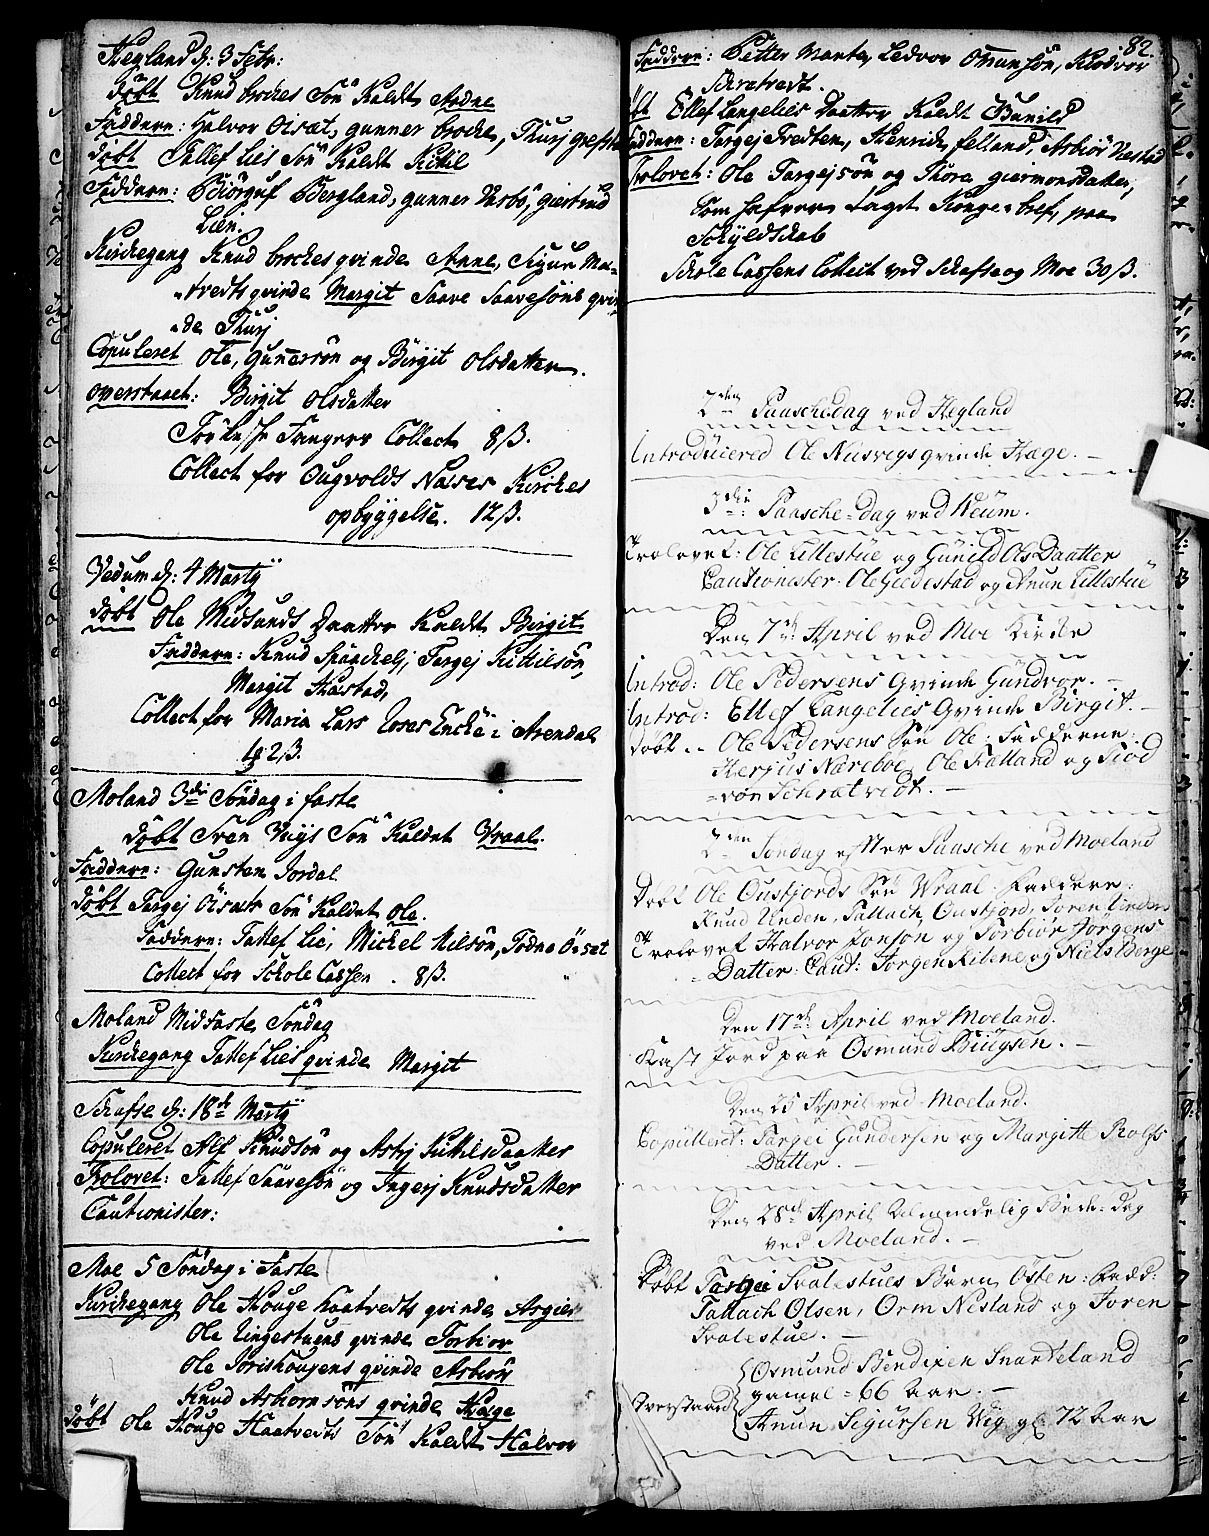 Hegland d: 3 Febr:
døbt Knud brockes Søn Kaldt Aadne
Faddere: Halvor Oisæt, gunner brocke, Thurj
døbt Tallef Lies Søn Kaldt Kittil
Faddere: Biörguf Bergland, gunner giertrud
Lien.
Kirkegang Knud brockes qvinde Anne, Sigur Moe-
tvedts qvinde Margit Saave Saavesöns qvin
-de Thurj
Copuleret Ole, gunersön og Birgit Olsdatter.
overstaaet: Birgit Olsdatter
Fangerer Collect 8 ß.
Collect for Ougvolds Næsses Kirckes
opbyggelse. 12 ß.
Vedum d: 4 Martij
döbt Ole Midsunds Daatter Kaldt Birgit
Faddere: Knud Targej Kittilsön,
Margit Hastad,
Collect for Maria Lars Encke i Arendal
2 ß.
Moland 3die Söndag i faste
döbt Sven Vigs Sön Kaldet Vraal.
Faddere: Gunsten Jordal
döbt Targej Öisæts Sön Kaldet Ole.
Faddere: Tallef Lie, Michel Nilsön, Todne Öset
Collect for Schole Cassen . 8 ß.
Moland Midfaste Söndag
Kirckegang Tallef Lies qvinde Margit
Skafse d: 18de Martij
Copuleret Alf Knudsön og Astrj Kittilsdaatter
Troloved: Tallef Saavesön og Ingerj Knudsdatter
Cautionister:
Moe 5 Söndag i Faste
Kirckegang Ole Houge Haatvedts qvinde Asgier
Ole Lingestuens qvinde Torbior
Ole qvinde Asbiör
Knud Asbiornsöns qvinde Hæge
döbt Ole Houge Haatvedts Sön Kaldt Halvor
82.
Faddere: Petter Ledvor Omunsön, Kiödvor
Skretvedt.
Ellef Langelies Daatter Kaldt Gunild
Faddere: Targej Tvedten, Henrick felland, Asbiör Næstad
Trolovet: Ole Targejsön og Thora giermonsdatter,
Som hafver taget Konge-bref, paa
Schyldskab
Skole Cassens Collect ved Skafse og Moe 30 ß.
2den Paaschedag ved Hegland
Introdücered Ole Næsvegs qvinde Hæge. -
3die Paasche-dag ved Weüm.
Trolovet: Ole Lillestüe og Günild Ols Daatter
Cautionister: Ole Giedestad og Anun Lillestüe
Den 7de April ved Moe Kircke
Introd: Ole Pedersens Qvinde Gündvor. -
Introd: Ellef Langelies Qvinde Birgit. -
Döbt . - Ole Pedersens Sön Ole: Fadderne:
Herjus Næreboe, Ole Fatland og Kiöd
-vör Schrætvedt. -
2den Söndag efter Paasche ved Moeland
Döbt Ole Oustjords Sön Wraal. Faddere:
Knud Unden, Tallach Oustjord, Joren Unden
Trolovet Halvor Jonsön og Torbiör Jörgens
- Datter: Caut: Jörgen Kilene og Niels Borge
Den 17de April ved Moeland.
Kast Jord paa Osmund Büigsen. -
Den 25 April ved Moeland.
Copülleret: Targei Gundersen og Margitte Rolfs
- Datter. -
Den 28de April Allmindelig Bede-Dag
ved Moeland. -
Döbt Targei Tvalestues Barn Osten: Fadd:
Tallach Olsen, Orm Nesland og Joren
Tvalestue. -
Overstaaed
Osmund Bendixen Snarteland
gamel = 66 Aar. -
Anun Sigursen Wig gl: 72 Aar